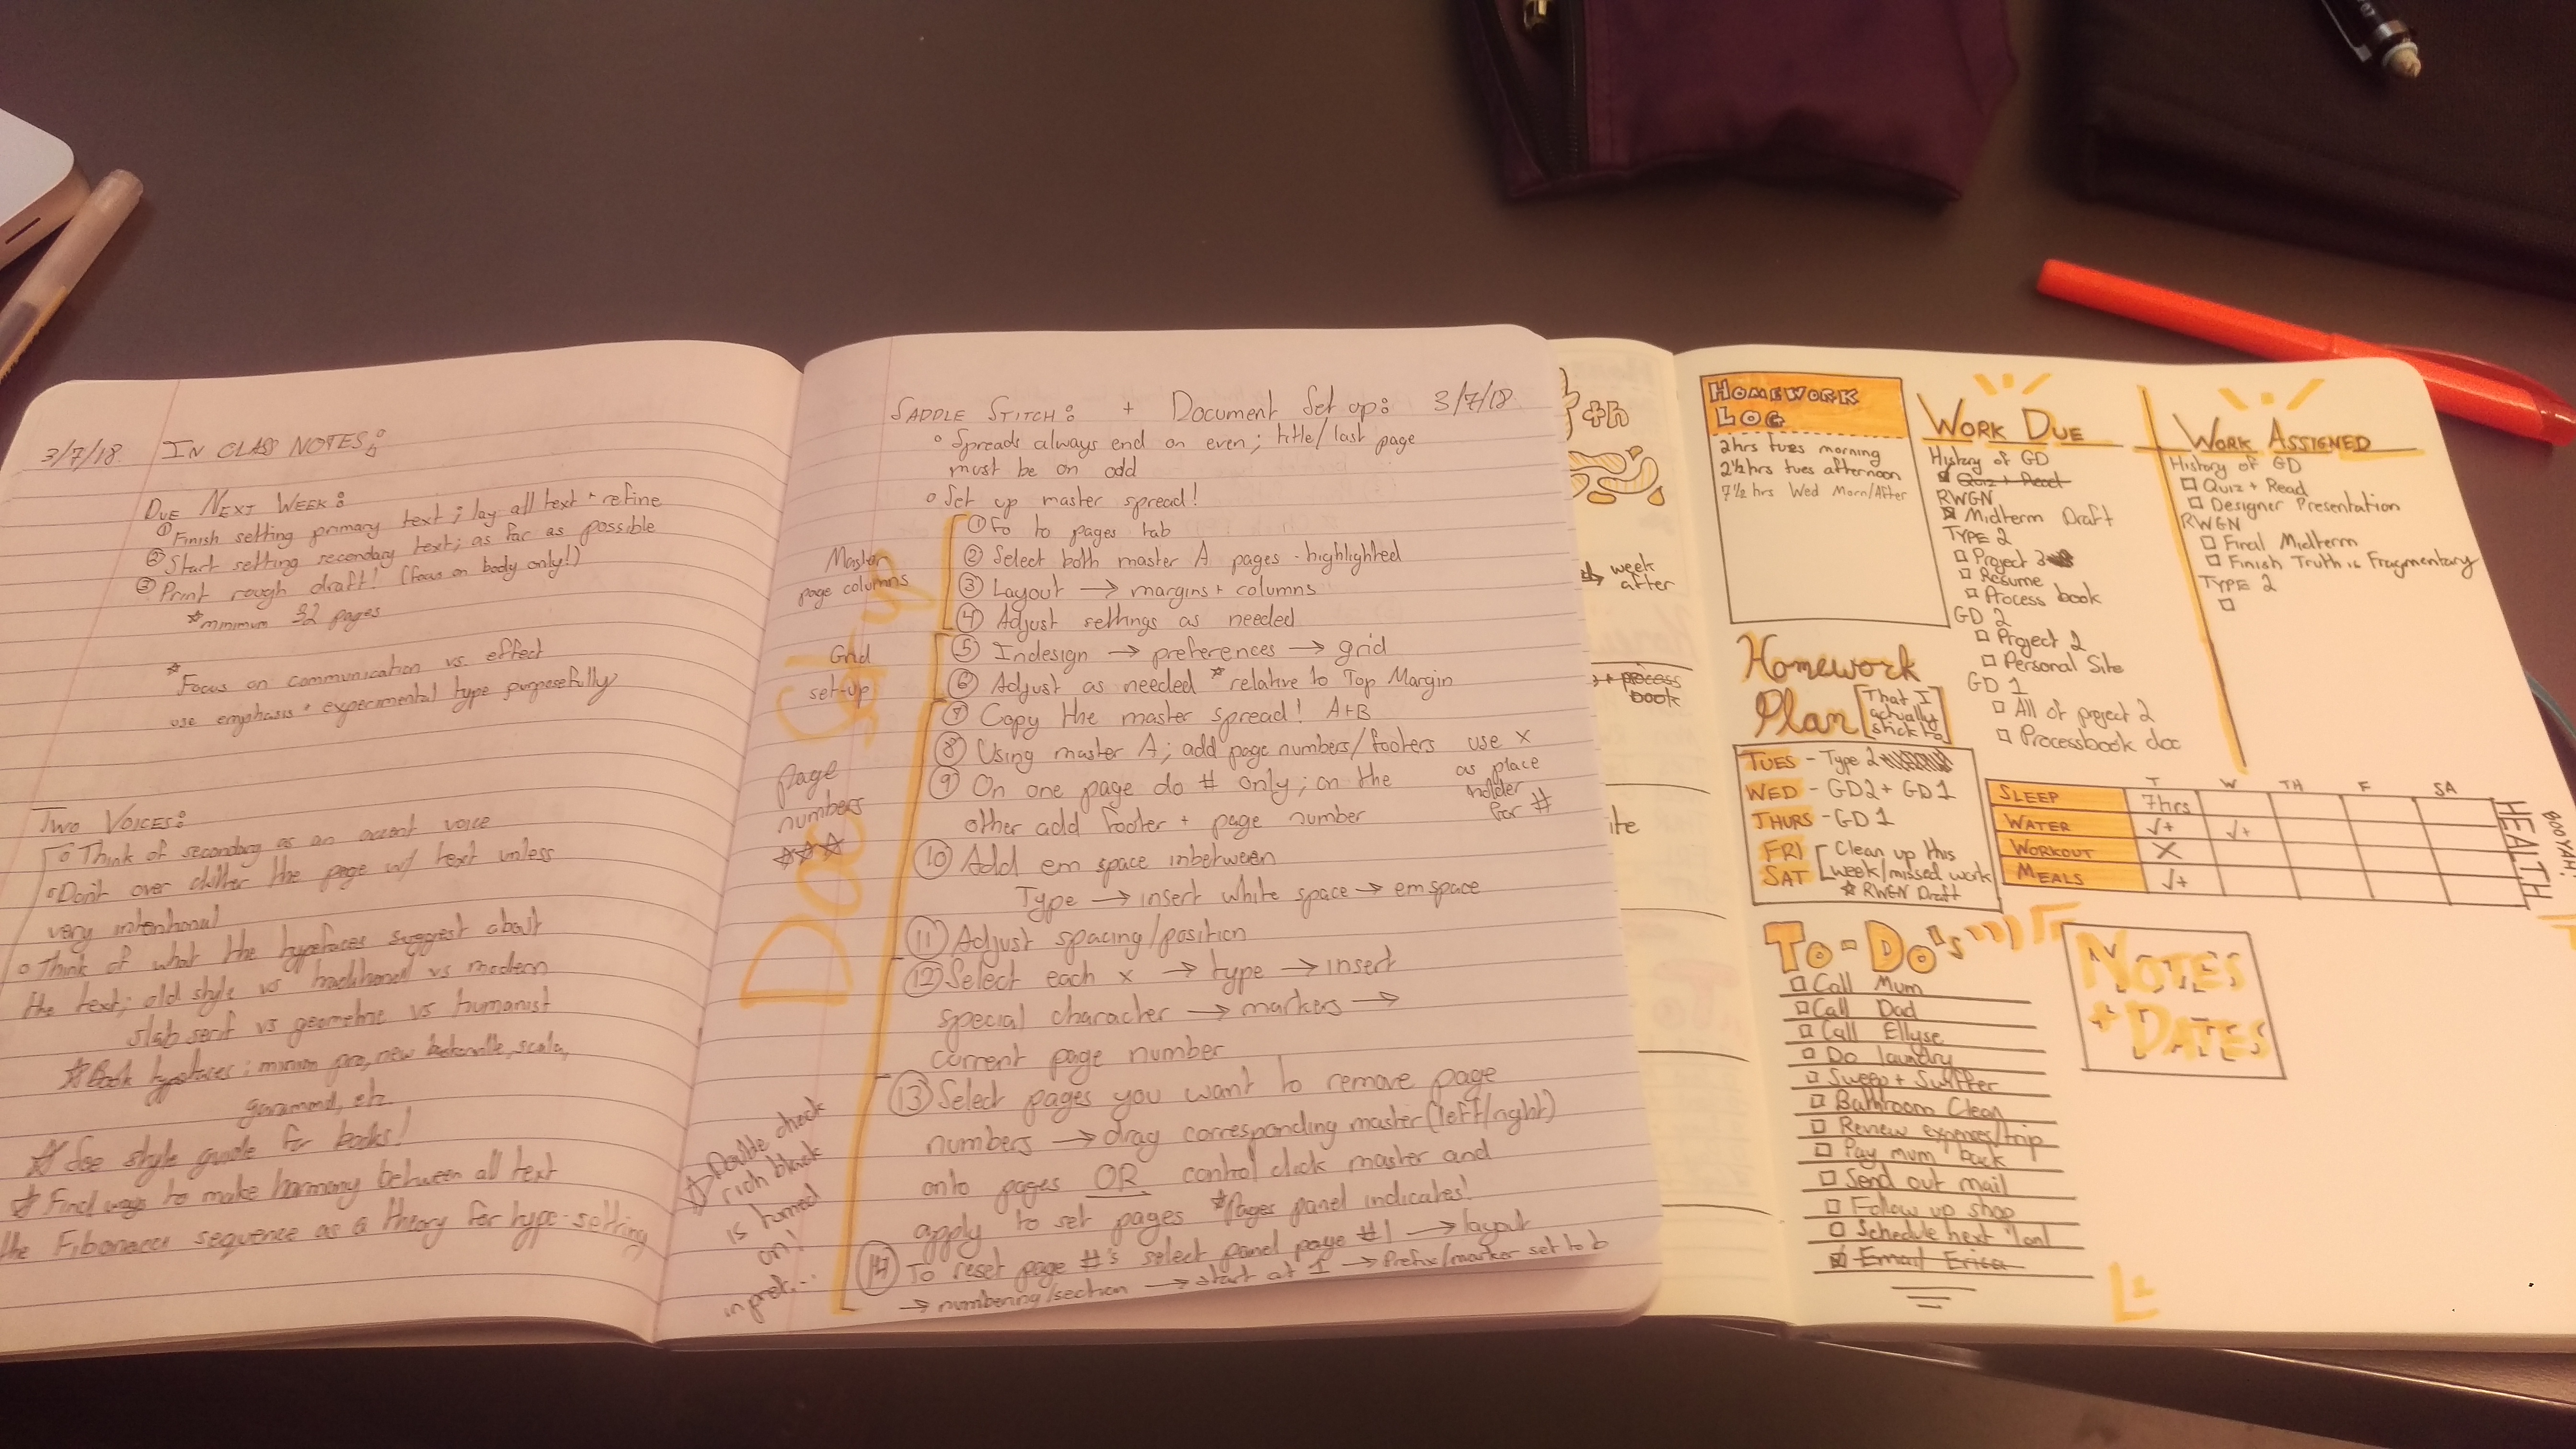 3/7/18. IN CLASS NOTES:
DUE NEXT WEEK:
① Finish setting primary text; lay all text + refine
② Start setting secondary text; as far as possible
③ Print rough draft! (focus on body only!)
* minimum 32 pages
* Focus on communication vs. effect
use emphasis + experimental type purposefully
TWO VOICES:
Think of secondary as an accent voice
Don't over clutter the page w/ text unless
very intentional
Think of what the typefaces suggest about
the text; old style vs traditional vs modern
slab serif vs geometric vs humanist
* Book typefaces: minion pro, new baskerville, scala,
garamond, etc.
* See style guide for books!
* Find ways to make harmony between all text
the Fibonacci sequence as a theory for type-setting
SADDLE STITCH: + Document Set up: 3/7/18
Spreads always end on even; title/last page
must be on odd
Set up master spread!
Doc Set-up
Master
page columns
① Go to pages tab
② Select both master A pages - highlighted
③ Layout → margins + columns
④ Adjust settings as needed
Grid
set-up
⑤ Indesign → preferences → grid
⑥ Adjust as needed * relative to Top Margin
page
numbers
⑦ Copy the master spread! A+B
⑧ Using master A; add page numbers/footers
use x
as place
holder
for #
⑨ On one page do # only; on the
other add footer + page number
⑩ Add em space inbetween
Type → insert white space → em space
⑪ Adjust spacing/position
⑫ Select each x → type → insert
special character → markers →
current page number
⑬ Select pages you want to remove page
numbers → drag corresponding master (left/right)
onto pages OR control click master and
apply to set pages * Pages panel indicates!
⑭ To reset page #'s select panel page #1 → layout
→ numbering/section → start at 1 → Prefix/marker set to b
* Double check
rich black
is turned
on!
in pref...
th
→ week
after
+ process
book
ite
HOMEWORK
LOG
2hrs tues morning
2½hrs tues afternoon
7½ hrs Wed Morn/After
WORK DUE
History of GD
Quiz + Read
RWGN
Midterm Draft
TYPE 2
Project 2
Resume
Process book
GD 2
Project 2
Personal Site
GD 1
All of project 2
Processbook doc
WORK ASSIGNED
History of GD
Quiz + Read
Designer Presentation
RWGN
Final Midterm
Finish Truth is Fragmentary
TYPE 2
Homework
Plan [That I
actually
stick to]
TUES - Type 2
WED - GD2 + GD1
THURS - GD 1
FRI [Clean up this
SAT week/missed work
* RWGN Draft
T W TH F SA
SLEEP 7hrs
WATER √+ √+
WORKOUT X
MEALS √+
HEALTH
BOOYAH!
TO-DO's
Call Mum
Call Dad
Call Ellyse
Do laundry
Sweep + Swiffer
Bathroom Clean
Review expenses/trip
Pay mum back
Send out mail
Follow up shop
Schedule next
Email Erica
NOTES
+ DATES